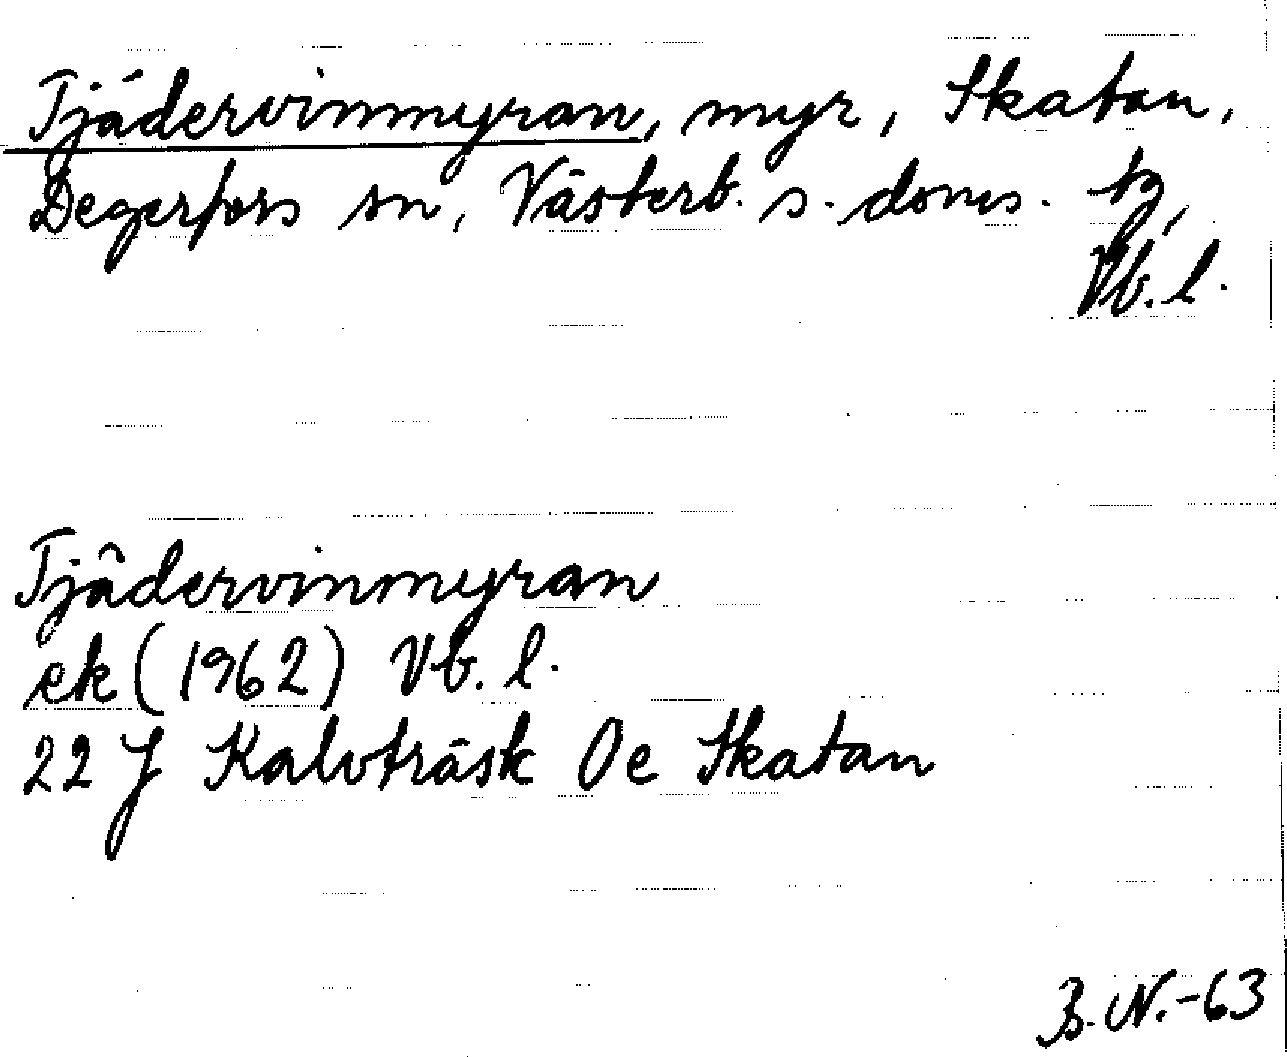 Tjädervinmyran, myr, Skatan,
Degerfors sn, Västerb. s. doms. tg,
Vb. l.
Tjädervinmyran
ek (1962) Vb. l.
22 J Kalvträsk Oe Skatan
B. N. -63